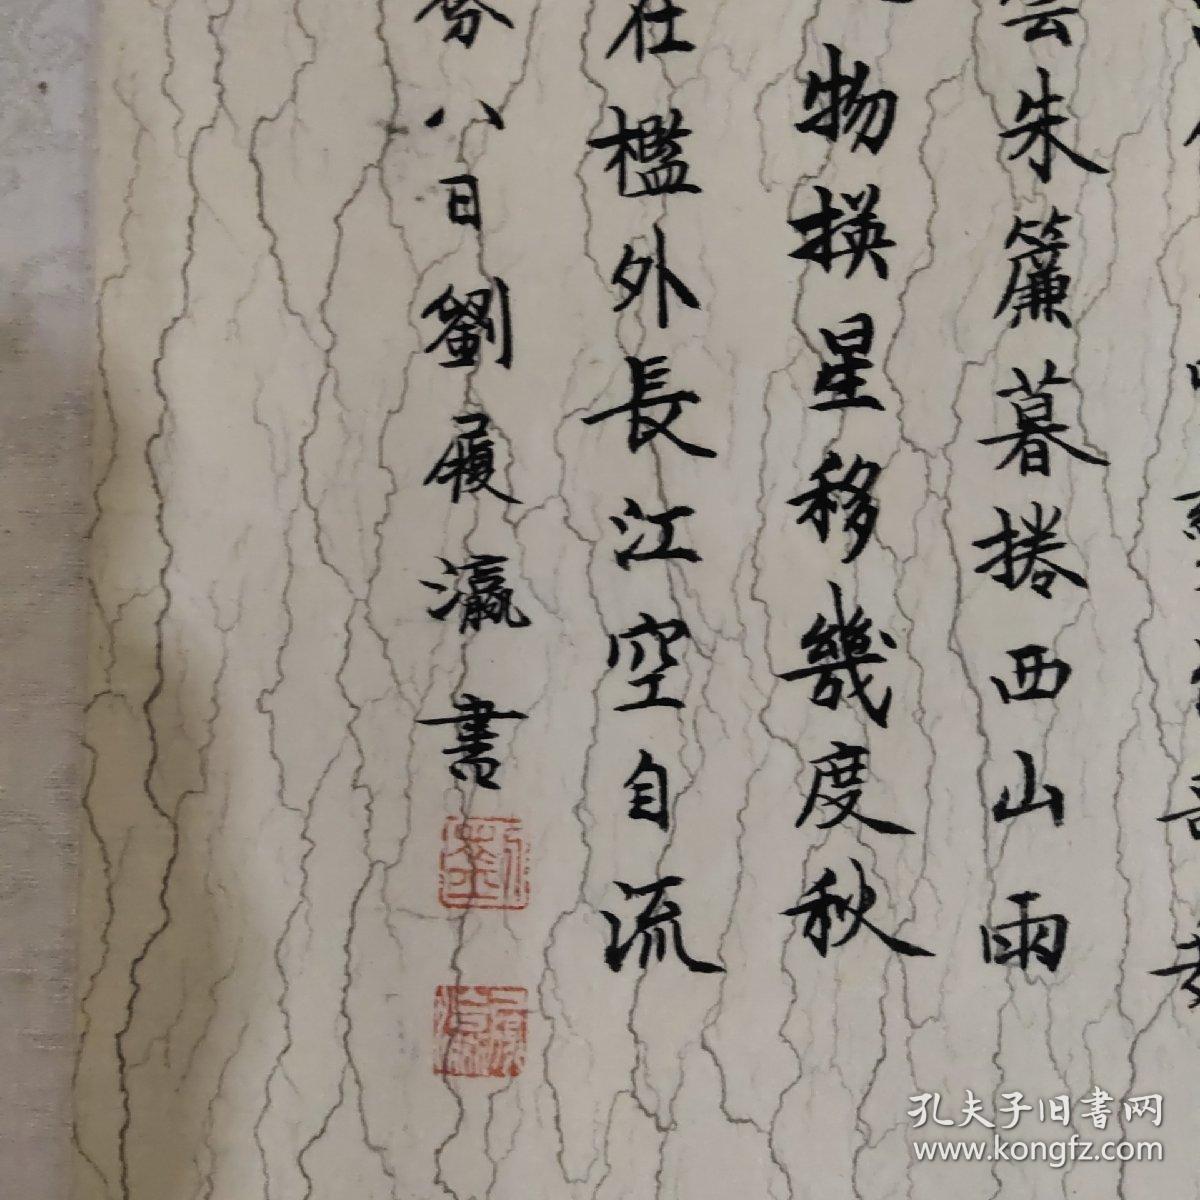 雲朱簾暮捲西山雨
物換星移幾度秋
在檻外長江空自流
八日劉履瀛書
劉
孔夫子旧書网
www.kongfz.com